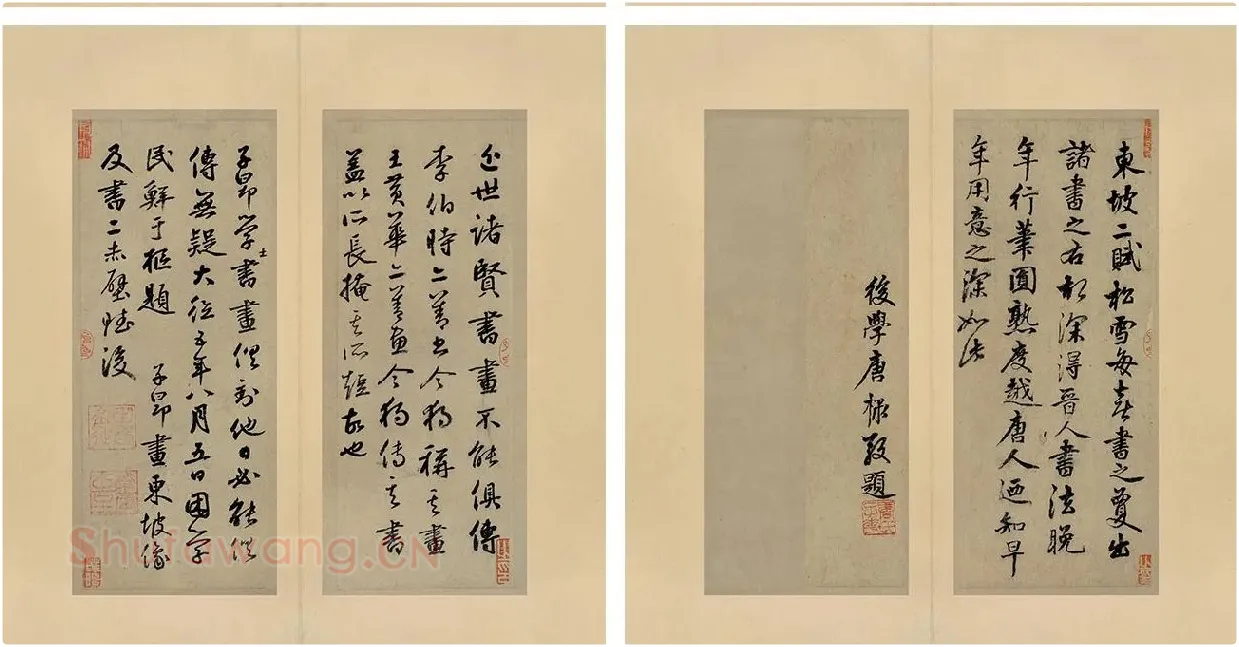 東坡二賦松雪每喜書之夐出
諸書之右深得晉人書法晚
年行筆圓熟度越唐人迺知早
年用意之深如此
後學唐棣敬題
近世諸賢書畫不能俱傳
李伯時亦善書今獨稱其畫
王黃華亦善畫今獨傳其書
蓋以所長掩其所短故也
子昂學士書畫俱到他日必能俱
傳無疑大德五年八月五日困學
民鮮于樞題 子昂畫東坡像
及書二赤壁賦後
Shufawang.CN